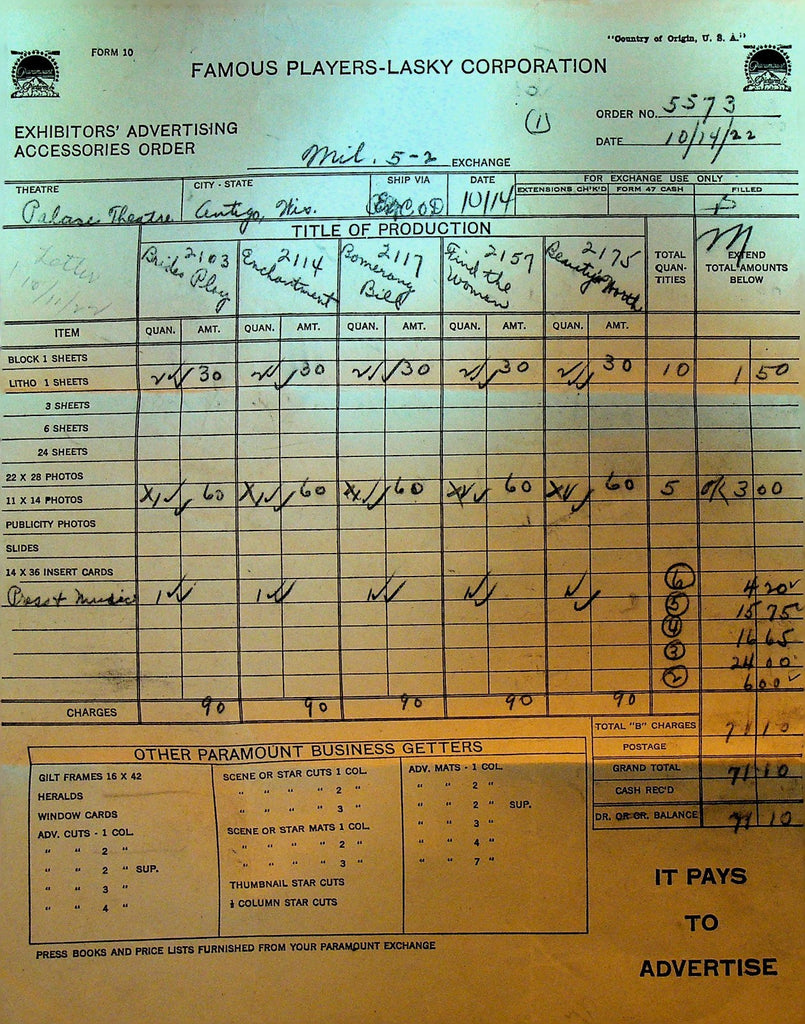 "Country of Origin, U. S. A."
FORM 10
FAMOUS PLAYERS-LASKY CORPORATION
Paramount Pictures
Paramount Pictures
(1)
ORDER NO. 5573
EXHIBITORS' ADVERTISING
ACCESSORIES ORDER
DATE 10/14/22
Mil. 5-2 EXCHANGE
THEATRE CITY - STATE SHIP VIA DATE FOR EXCHANGE USE ONLY
EXTENSIONS CH'K'D FORM 47 CASH FILLED
Palace Theatre Antigo, Wis. C O D 10/14
TITLE OF PRODUCTION
Letter 10/11/22
2103 Brides Play
2114 Enchantment
2117 Bomerang Bill
2157 Find the Woman
2175 Beauty's Worth
TOTAL QUAN-TITIES
EXTEND TOTAL AMOUNTS BELOW
ITEM QUAN. AMT. QUAN. AMT. QUAN. AMT. QUAN. AMT. QUAN. AMT.
BLOCK 1 SHEETS
LITHO 1 SHEETS 2 30 2 30 2 30 2 30 2 30 10 1 50
3 SHEETS
6 SHEETS
24 SHEETS
22 X 28 PHOTOS
11 X 14 PHOTOS X1 60 X1 60 X1 60 X1 60 X1 60 5 3 00
PUBLICITY PHOTOS
SLIDES
14 X 36 INSERT CARDS
Press + Music 1 1 1 1 1
(6) 4 20
(5) 15 75
(4) 16 65
(3) 24 00
(2) 6 00
CHARGES 90 90 90 90 90
TOTAL "B" CHARGES 71 10
POSTAGE
GRAND TOTAL 71 10
CASH REC'D
DR. OR CR. BALANCE 71 10
OTHER PARAMOUNT BUSINESS GETTERS
GILT FRAMES 16 X 42
HERALDS
WINDOW CARDS
ADV. CUTS - 1 COL.
" " 2 "
" " 2 " SUP.
" " 3 "
" " 4 "
SCENE OR STAR CUTS 1 COL.
" " " " 2 "
" " " " 3 "
SCENE OR STAR MATS 1 COL.
" " " " 2 "
" " " " 3 "
THUMBNAIL STAR CUTS
½ COLUMN STAR CUTS
ADV. MATS - 1 COL.
" " 2 "
" " 2 " SUP.
" " 3 "
" " 4 "
" " 7 "
PRESS BOOKS AND PRICE LISTS FURNISHED FROM YOUR PARAMOUNT EXCHANGE
IT PAYS
TO
ADVERTISE